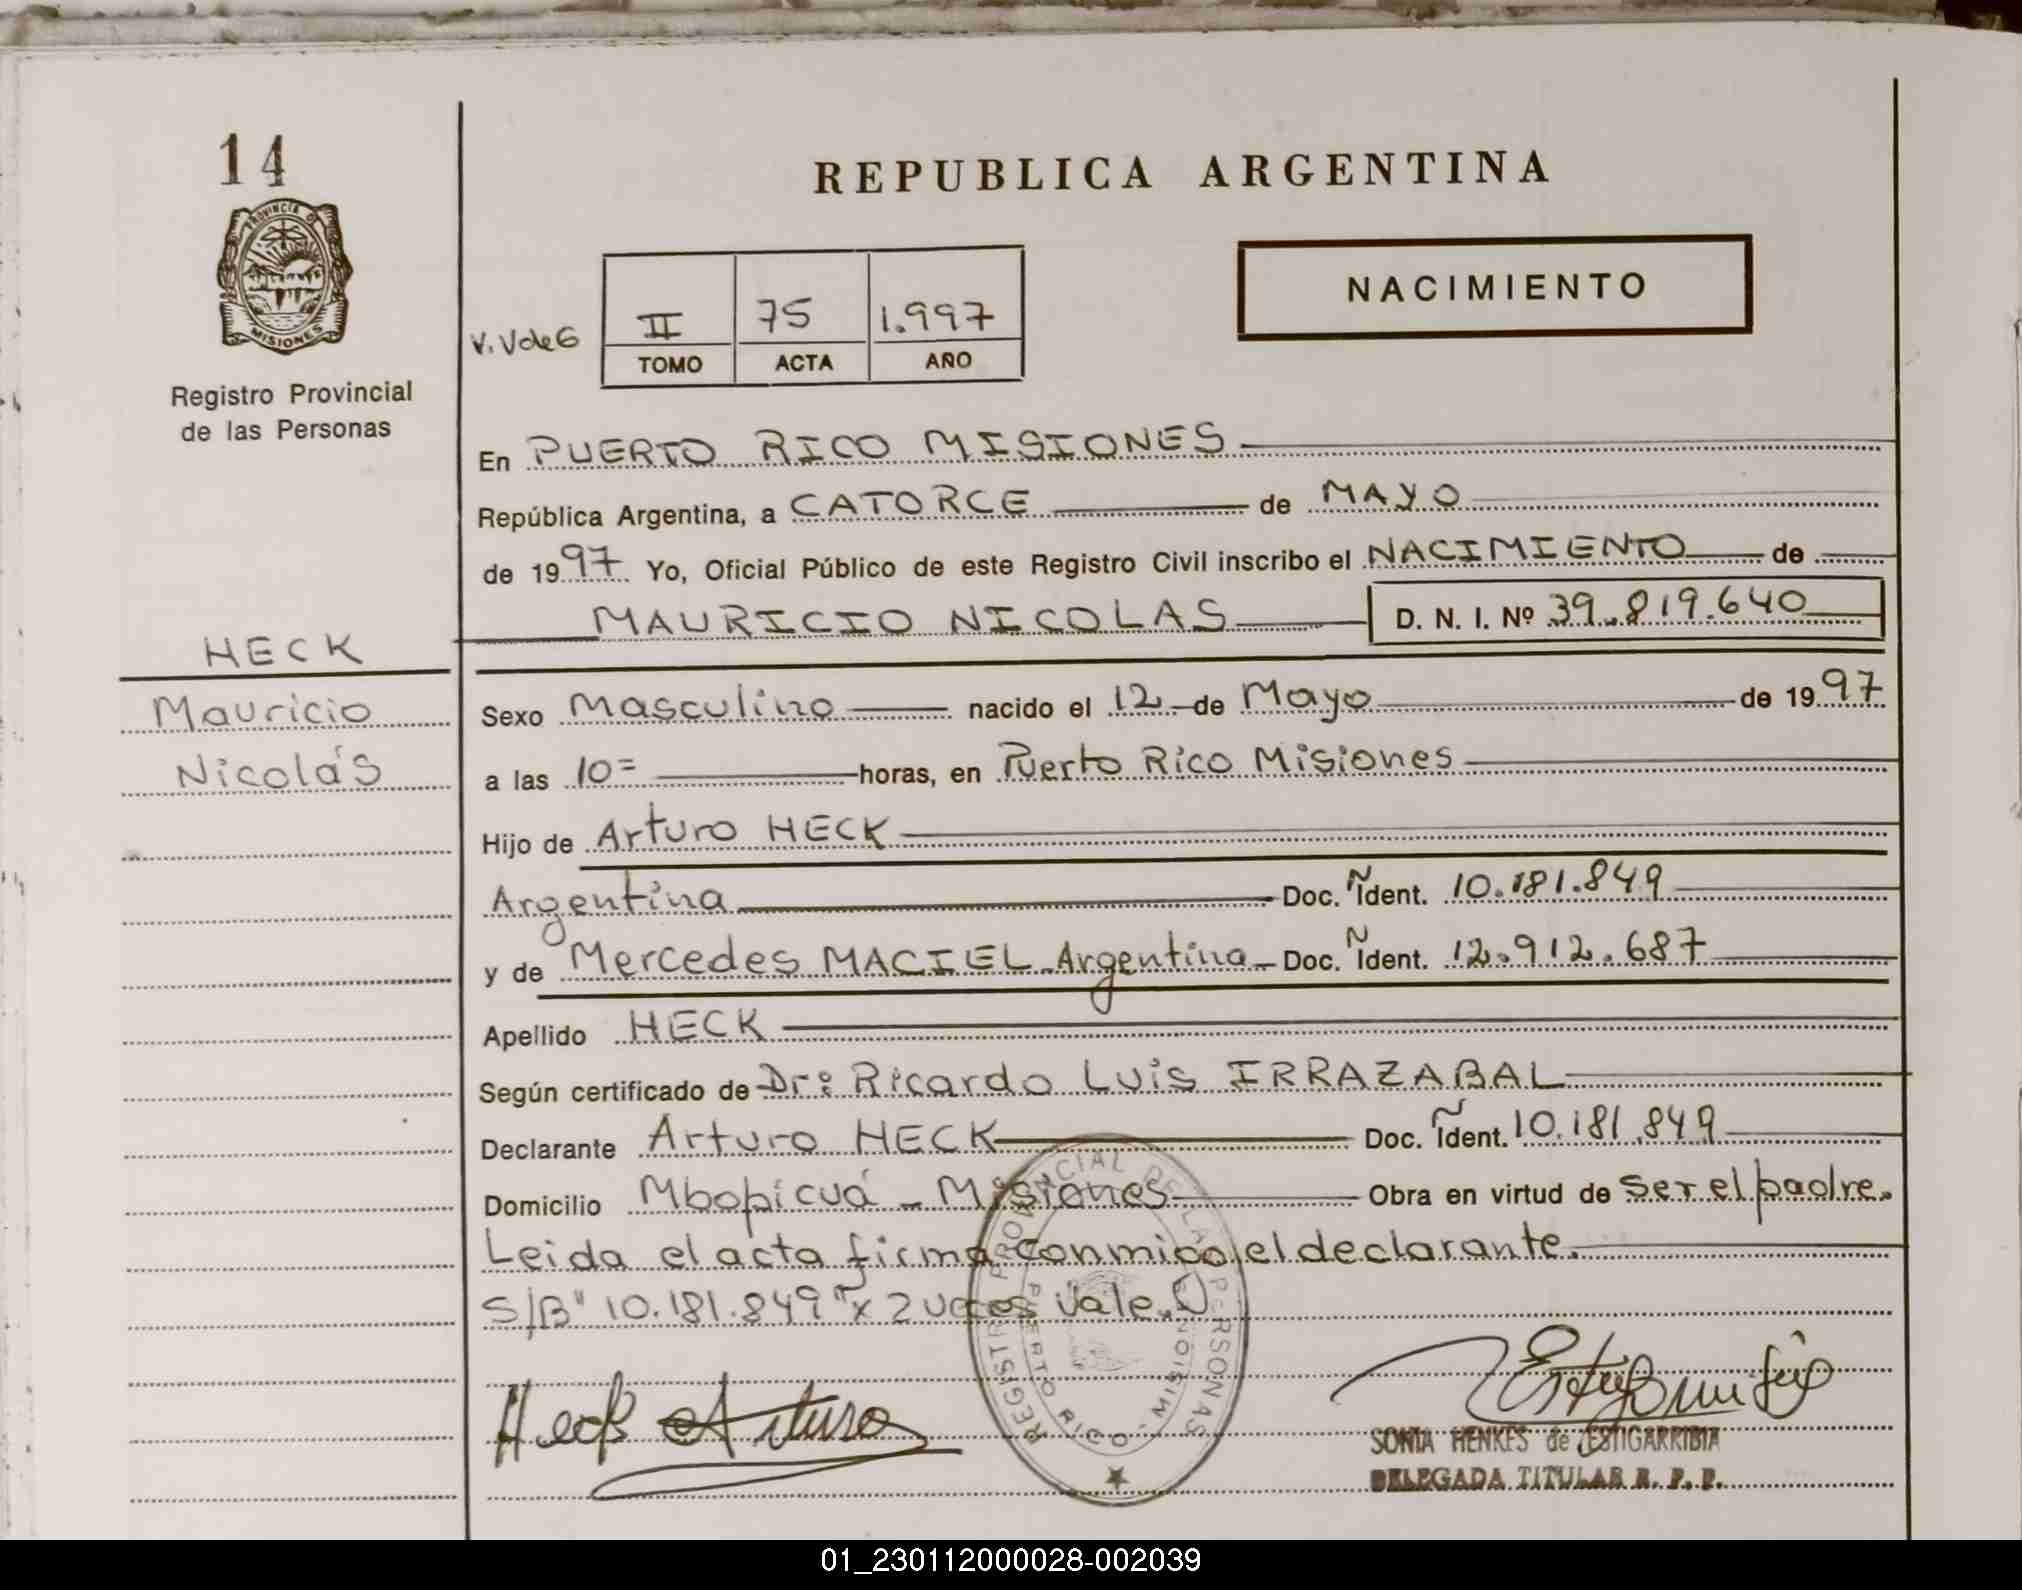 14
REPUBLICA ARGENTINA
PROVINCIA DE
MISIONES
NACIMIENTO
V. V de G
II 75 1.997
TOMO ACTA AÑO
Registro Provincial
de las Personas
En PUERTO RICO MISIONES
República Argentina, a CATORCE de MAYO
de 1997 Yo, Oficial Público de este Registro Civil inscribo el NACIMIENTO de
MAURICIO NICOLAS D. N. I. Nº 39.819.640
HECK
Mauricio
Nicolás
Sexo Masculino nacido el 12 de Mayo de 1997
a las 10= horas, en Puerto Rico Misiones
Hijo de Arturo HECK
Argentina Doc. Ident. 10.181.849
y de Mercedes MACIEL Argentina Doc. Ident. 12.912.687
Apellido HECK
Según certificado de Dr: Ricardo Luis IRRAZABAL
Declarante Arturo HECK Doc. Ident. 10.181.849
Domicilio Mbopicuá - Misiones Obra en virtud de ser el padre.
Leida el acta firma conmigo el declarante.
S/B" 10.181.849" x 2 veces vale.
REGISTRO PROVINCIAL DE LAS PERSONAS
PUERTO RICO - MISIONES
Heck Arturo
SONIA HENKES de ESTIGARRIBIA
DELEGADA TITULAR R. P. P.
01_230112000028-002039